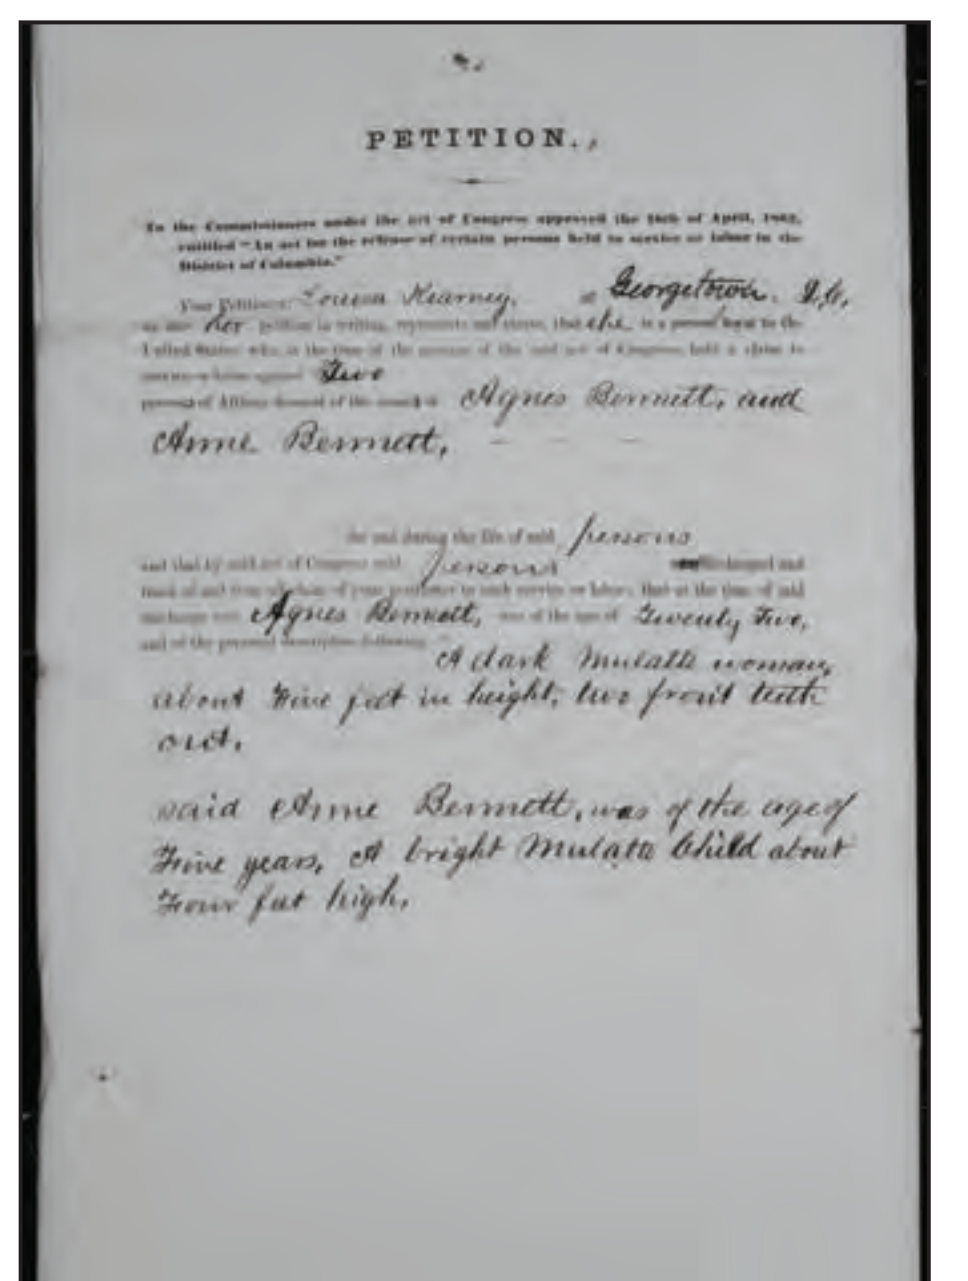 PETITION.
To the Commissioners under the act of Congress approved the 16th of April, 1862,
entitled "An act for the release of certain persons held to service or labor in the
District of Columbia."
Your Petitioner, Louisa Kearney, of Georgetown, D.C.
by this her petition in writing, represents and states, that she is a person loyal to the
United States, who, at the time of the passage of the said act of Congress, held a claim to
service or labor against Two
persons of African descent of the name of Agnes Bennett, and
Anne Bennett,
for and during the life of said persons
and that by said act of Congress said persons discharged and
freed of and from all claim of your petitioner to such service or labor; that at the time of said
discharge said Agnes Bennett, was of the age of Twenty Two,
and of the personal description following:
A dark Mulatto woman,
about Five feet in height, two front teeth
out.
said Anne Bennett, was of the age of
Five years, A bright Mulatto Child about
Four feet high.